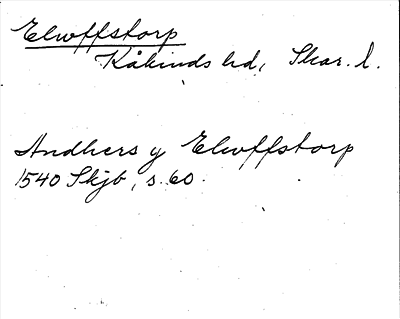 Elwffstorp
Kåkinds hd, Skar. l.
Andhers y Elwffstorp
1540 Skjb, s. 60.